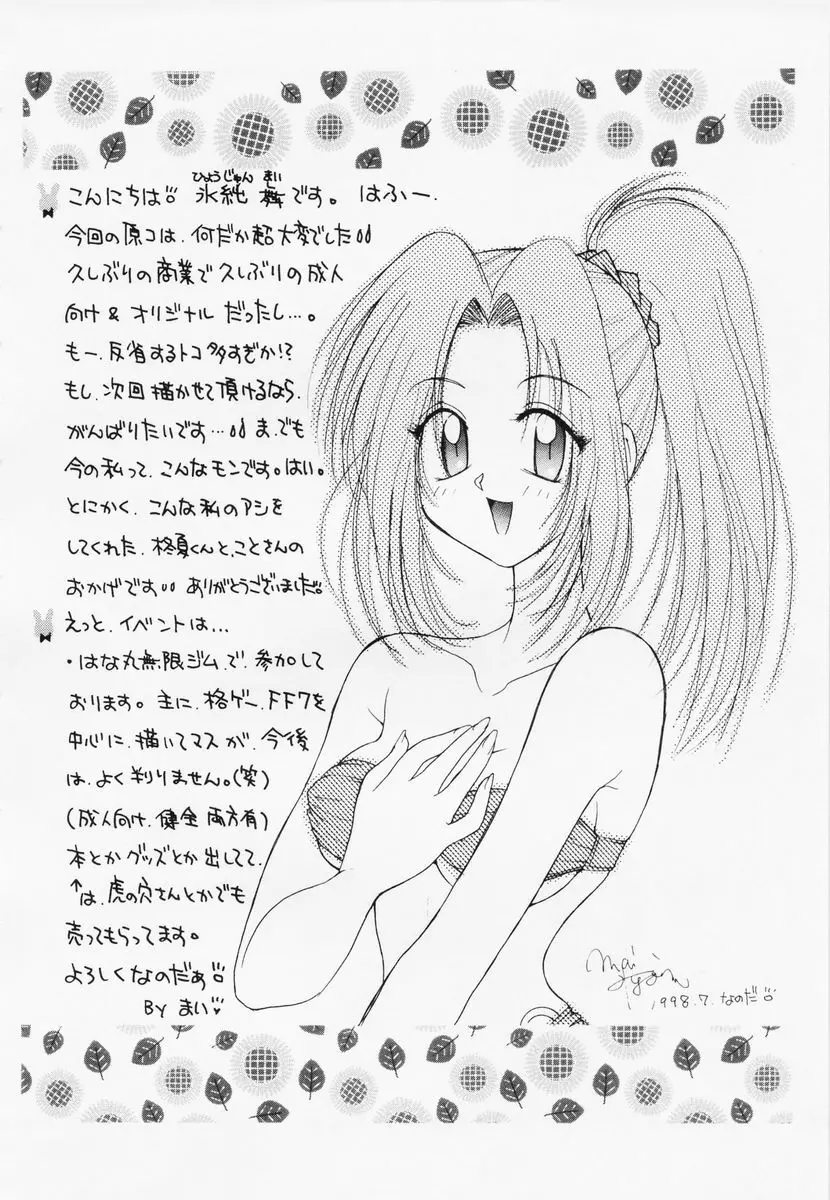 ひょうじゅん まい
こんにちは 氷純 舞です。 はふー.
今回の原コは、何だか超大変でした
久しぶりの商業で久しぶりの成人
向け & オリジナル だったし…。
もー、反省するトコ多すぎか!?
もし、次回描かせて頂けるなら、
がんばりたいです… ま、でも
今の私って、こんなモンです。はい。
とにかく、こんな私のアシを
してくれた、柊夏くんと、ことさんの
おかげです ありがとうございました。
えっと、イベントは…
・はな丸無限ジム、で、参加して
おります。主に、格ゲー、FF7を
中心に、描いてマスが、今後
は、よく判りません。(笑)
(成人向け、健全 両方有)
本とか グッズとか 出してて、
↑は、虎の穴さんとかでも
売ってもらってます。
よろしくなのだぁ
By まい
Mai
1998.7. なのだ